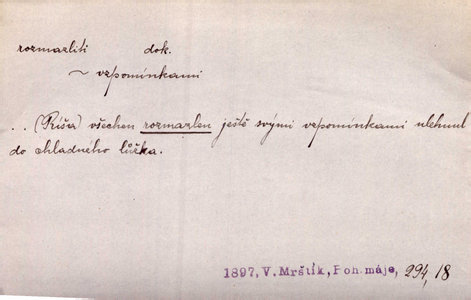 rozmazliti dok.
~ vzpomínkami
.. (Ríša) všechen rozmazlen ještě svými vzpomínkami ulehnul
do chladného lůžka.
1897, V. Mrštík, Poh. máje, 294, 18